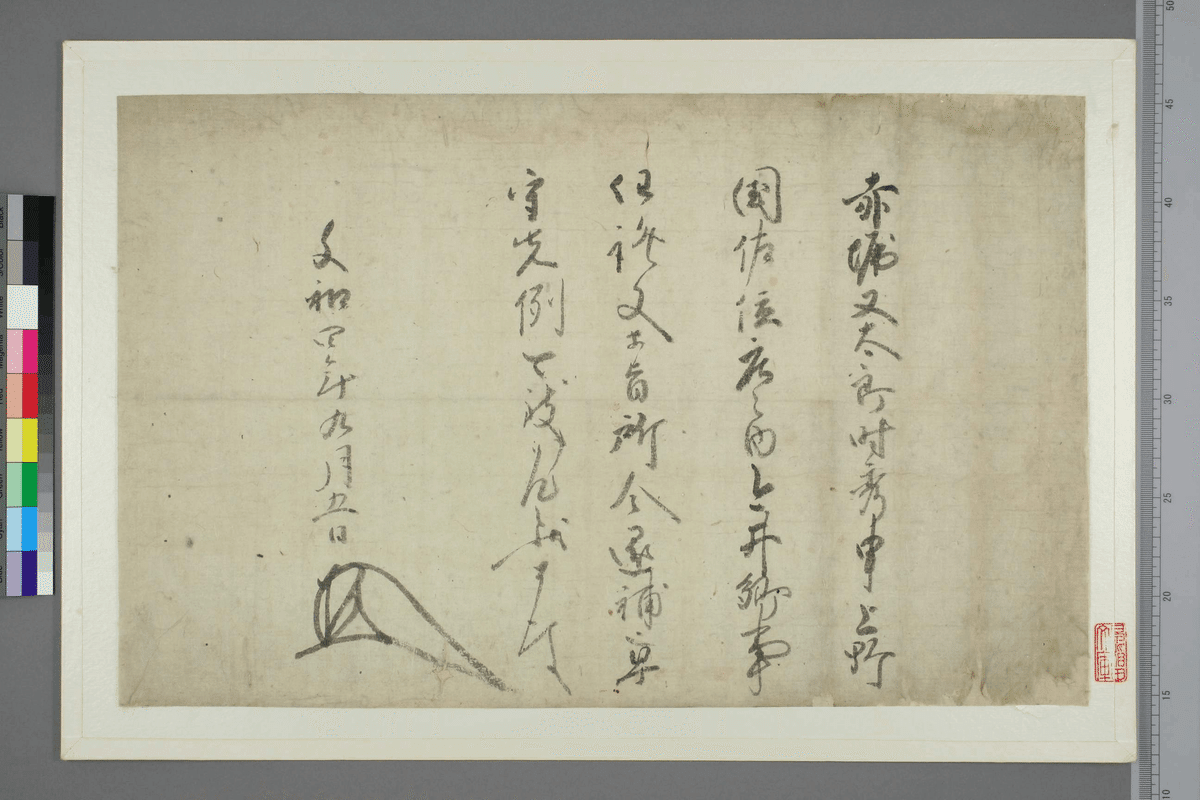 赤堀又太郎時秀申上野
国佐位庄之内上井郷事
任譲文等旨所令還補早
守先例可致之状如件
文和四年九月五日